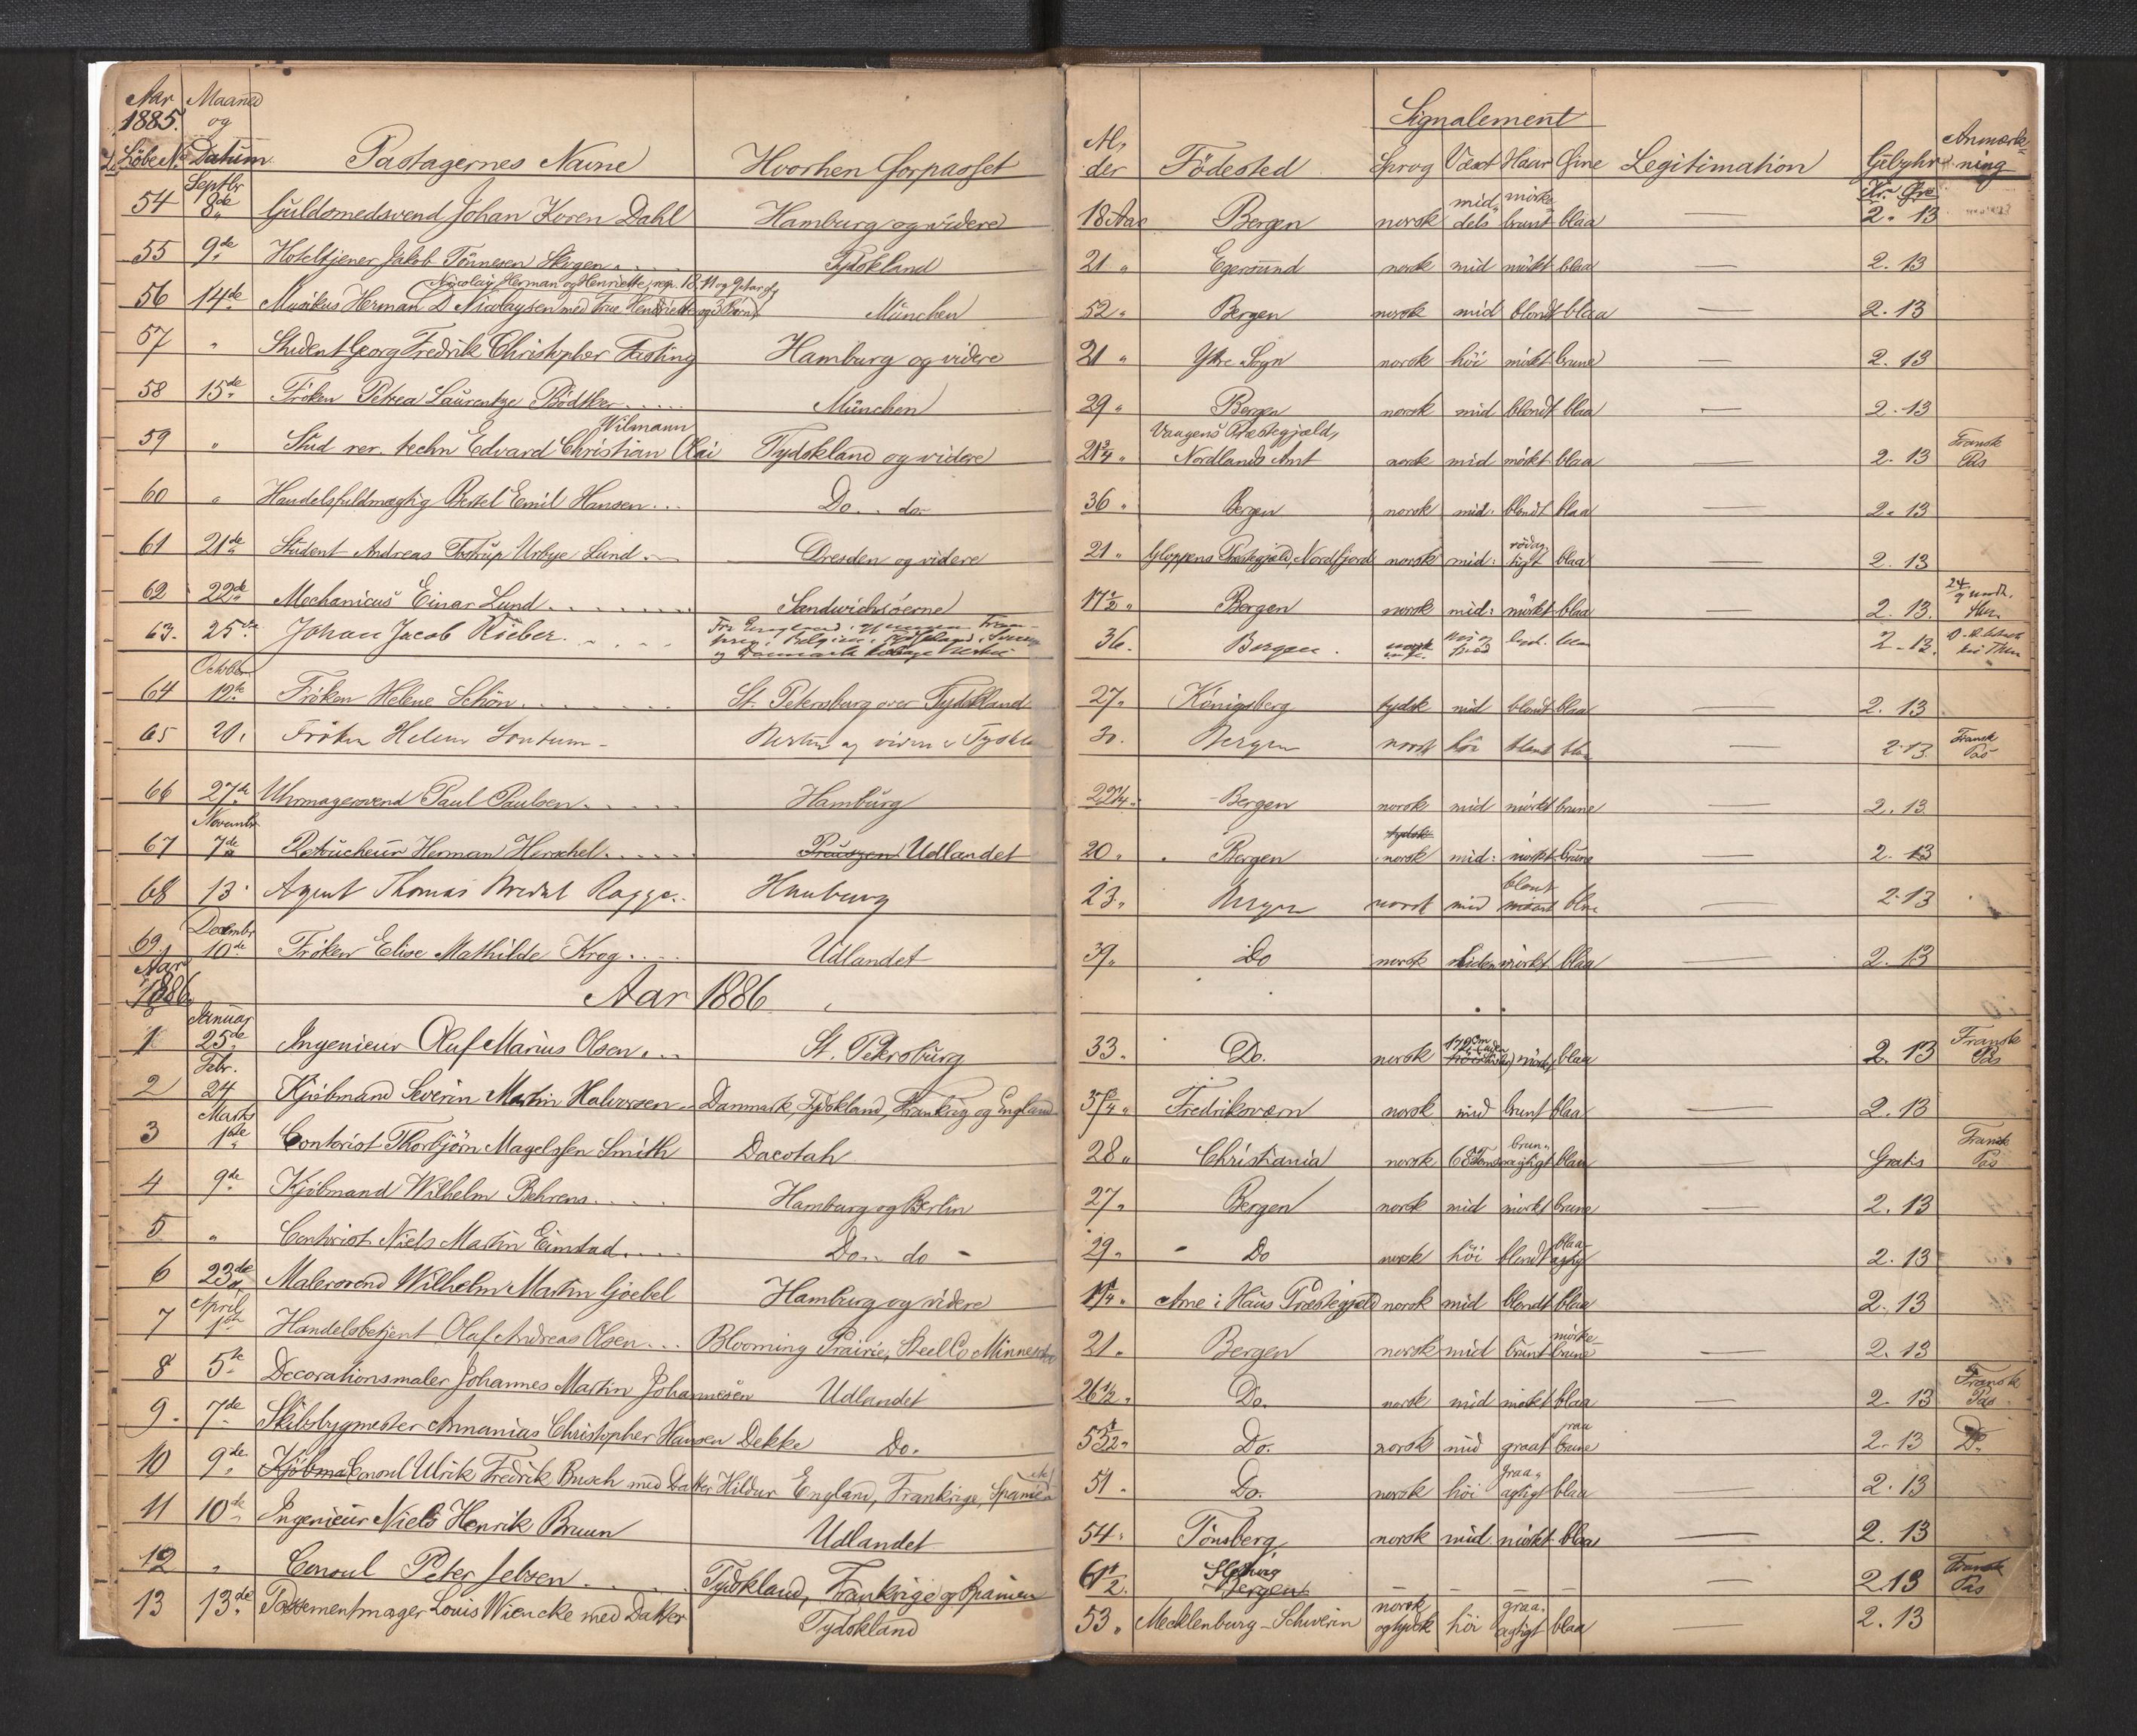 Aar Maaned Signalement
1885. og Al, Anmærk-
Löbe No Datum Passagernes Navne Hvorhen forpasset der Födested Sprog Væxt Haar Öine Legitimation Gebyhr ning
Septbr Kr. Öre
54 8de Guldsmedsvend Johan Koren Dahl Hamburg og videre 18 Aar Bergen norsk mid,, dels mörke brunt blaa — 2. 13
55 9de Hoteltjener Jakob Tönnesen Skogen Tydskland 21 " Egersund norsk mid mörkt blaa — 2. 13
Nicolay, Herman og Henriette, resp. 13. 11 og
56 14de Musikus Herman D Nicolaysen med Frue Hendriette og 3 Börn München 52 " Bergen norsk mid blondt blaa — 2. 13
57 " Student Georg Fredrik Christopher Fasting Hamburg og videre 21 " Ytre Sogn norsk höi mörkt brune — 2. 13
58 15de Fröken Petrea Laurentze Bödtker München 29 " Bergen norsk mid blondt blaa — 2. 13
Wilmann Vaagens Præstegjæld,
59 " Stud rer. techn Edvard Christian Olai Tydskland og videre 21 3/4 " Nordlands Amt norsk mid mörkt blaa — 2. 13 Fransk Pas
60 " Handelsfuldmægtig Bertel Emil Hansen Do. do. 36 " Bergen norsk mid. blondt blaa 2. 13
61 21de Student Andreas Tostrup Urbye Lund Dresden og videre 21 " Gloppens Præstegjæld, Nordfjord norsk mid: rödagtigt blaa — 2. 13
62 22de Mechanicus Einar Lund Sandwichsöerne 17 1/2 " Bergen norsk mid: mörkt blaa — 2. 13.
63. 25de Johan Jacob Rieber. 36. Bergen. norsk — 2. 13.
October
64 12te Fröken Helene Schön St. Petersburg over Tydskland 27 " Königsberg tydsk mid blondt blaa — 2. 13
65 20. Fröken Helene Berlin og videre i Tyskl 30. Bergen norsk höi blondt blaa — 2. 13. Fransk Pas
66 27de Uhrmagersvend Paul Paulsen Hamburg 22 1/4 " Bergen norsk mid mörkt brune — 2. 13.
Novembr tydsk
67 7de Retoucheur Herman Herschel Preussen Udlandet 20 " Bergen norsk mid: mörkt brune — 2. 13
68 13. Agent Thomas Bredal Hamburg 23 " Bergen norsk mid blont blaa — 2. 13
Decembr
69 10de Fröken Elise Mathilde Krog Udlandet 39 " Do norsk liden mörkt blaa — 2. 13
Aar
1886 Aar 1886
Januar
1 25de Ingenieur Oluf Marius Olsen St. Petersburg 33. Do. norsk mörkt blaa — 2. 13 Fransk Pas
Febr.
2 24 Kjöbmand Severin Martin Halvorsen Danmark, Tydskland, Frankrig og England 37 3/4 " Fredriksværn norsk mid brunt blaa — 2. 13
Marts
3 1ste Contorist Thorbjörn Magelssen Smith Dacotah 28 " Christiania norsk brunagtigt blaa — Gratis Fransk Pas
4 9de Kjöbmand Wilhelm Behrens Hamburg og Berlin 27 " Bergen norsk mid mörkt brune — 2. 13
5 " Contorist Niels Martin Eimstad Do. do - 29 " Do norsk höi blondt blaaagtig 2. 13
6 23de Malersvend Wilhelm Martin Goebel Hamburg og videre Arne i Haus Præstegjæld norsk mid blondt blaa 2. 13
April
7 1ste Handelsbetjent Olaf Andreas Olsen Blooming Prairie, Steel Co Minnesota 21 " Bergen norsk mid brunt mörkebrune — 2. 13
8 5te Decorationsmaler Johannes Martin Johannesen Udlandet 26 1/2 " Do. norsk mid mörkt blaa — 2. 13 Fransk Pas
9. 7de Skibsbygmester Annanias Christopher Hansen Dekke Do. Do. norsk mid graat graa brune 2. 13 Do.
10 9de Kjöbma Consul Ulrik Fredrik Busch med Datter Hildur England, Frankrige, Spanien 51 " Do. norsk höi graaagtigt blaa 2. 13
11 10de Ingenieur Niels Henrik Bruun Udlandet 54 " Tönsberg norsk mid mörkt blaa — 2. 13
12 " Consul Peter Jebsen Tydskland, Frankrige og Spanien 61 1/2. Bergen — — — — — 2. 13 Fransk Pas
13 13de Possementmager Louis Wiencke med Datter Tydskland 53 " Mecklenburg-Schwerin norsk og tydsk höi graaagtigt blaa — 2. 13